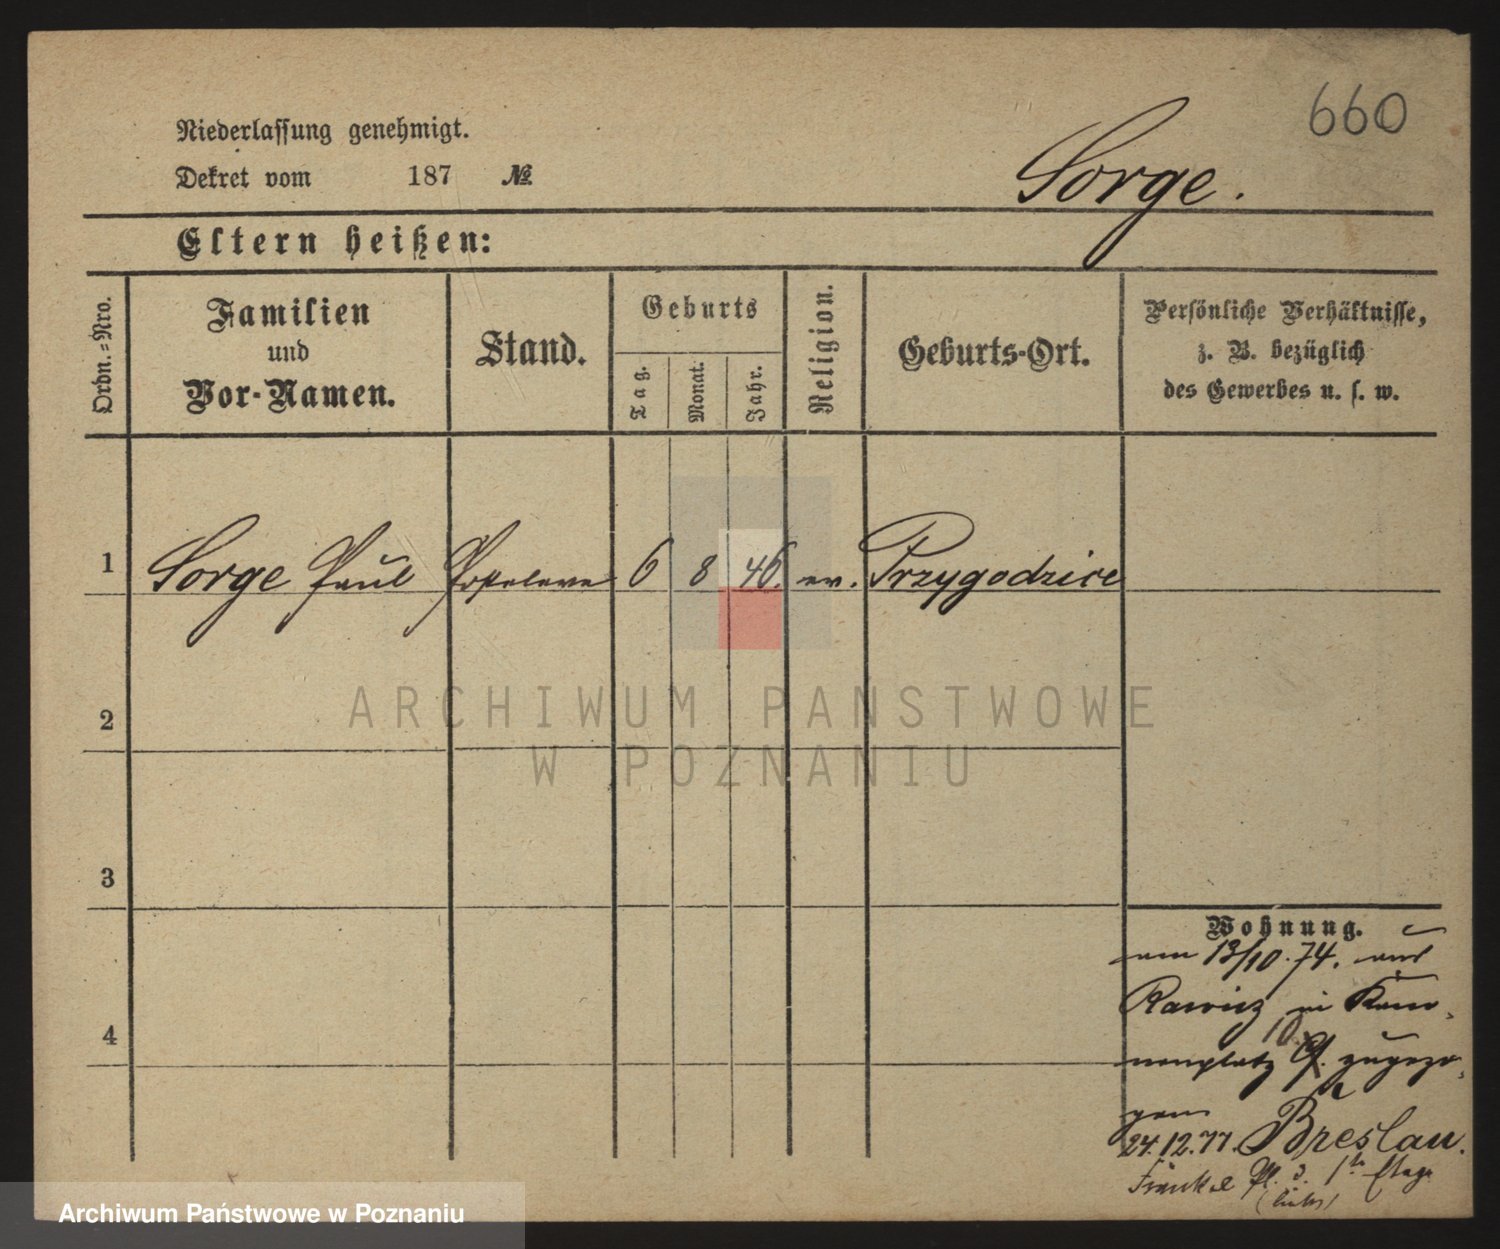 660
Niederlassung genehmigt.
Dekret vom 187 № Sorge.
Eltern heißen:
Ordn.-Nro.
Familien
und
Vor-Namen.
Stand.
Geburts
Tag.
Monat.
Jahr.
Religion.
Geburts-Ort.
Persönliche Verhältnisse,
z. B. bezüglich
des Gewerbes u. s. w.
1 Sorge Paul Posteleve 6 8 46. ev. Przygodzice
2
3
4
ARCHIWUM PAŃSTWOWE
W POZNANIU
Wohnung.
am 13/10. 74. aus
Rawicz in Kano-
nenplatz 10 zugezo-
gen
24.12.77. Breslau.
Fränkel Pl. 3. 1te Etage
(links)
Archiwum Państwowe w Poznaniu